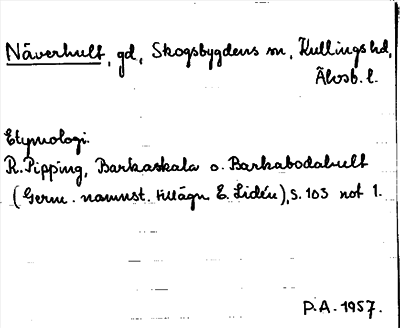 Näverhult, gd, Skogsbygdens sn, Kullings hd,
Älvsb. l.
Etymologi.
R. Pipping, Barkaskala o. Barkabodahult
(Germ. namnst. tillägn. E. Lidén), s. 103 not 1.
P.A. 1957.